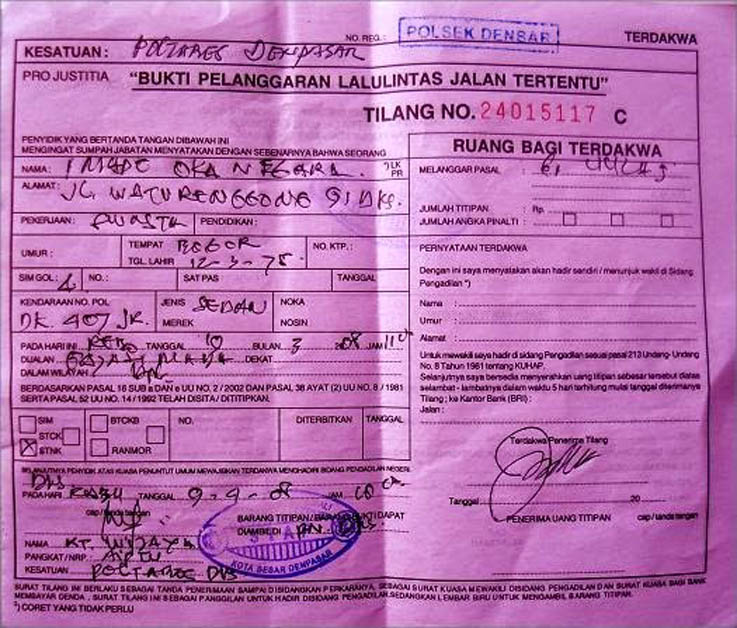 NO. REG.: POLSEK DENBAR TERDAKWA
KESATUAN : POLTABES DENPASAR
PRO JUSTITIA "BUKTI PELANGGARAN LALULINTAS JALAN TERTENTU"
TILANG NO. 24015117 C
PENYIDIK YANG BERTANDA TANGAN DIBAWAH INI
MENGINGAT SUMPAH JABATAN MENYATAKAN DENGAN SEBENARNYA BAHWA SEORANG
NAMA : I MADE OKA NEGARA. LK
PR
ALAMAT : JL. WATURENGGONG 91 Dks.
PEKERJAAN : SWASTA PENDIDIKAN :
UMUR : TEMPAT BOGOR NO. KTP. :
TGL. LAHIR 12-3-75.
SIM GOL : NO. : SAT PAS TANGGAL
KENDARAAN NO. POL JENIS SEDAN NOKA
DK. 407 JK. MEREK NOSIN
PADA HARI INI TANGGAL BULAN 3 JAM
DIJALAN DEKAT
DALAM WILAYAH
BERDASARKAN PASAL 16 SUB a DAN e UU NO. 2 / 2002 DAN PASAL 38 AYAT (2) UU NO. 8 / 1981
SERTA PASAL 52 UU NO. 14 / 1992 TELAH DISITA / DITITIPKAN.
SIM BTCKB NO. DITERBITKAN TANGGAL
STCK
STNK RANMOR
SELANJUTNYA PENYIDIK ATAS KUASA PENUNTUT UMUM MEWAJIBKAN TERDAKWA MENGHADIRI SIDANG PENGADILAN NEGERI
DPS
PADA HARI RABU TANGGAL 9-4-08 JAM 10
cap / tanda tangan BARANG TITIPAN / BARANG BUKTI DAPAT
DIAMBIL DI PN. DPS
NAMA KT. WIDAYA
PANGKAT / NRP. AIPTU
KESATUAN POLTABES DPS
KOTA BESAR DENPASAR
RUANG BAGI TERDAKWA
MELANGGAR PASAL : 61
JUMLAH TITIPAN : Rp.
JUMLAH ANGKA PINALTI :
PERNYATAAN TERDAKWA
Dengan ini saya menyatakan akan hadir sendiri / menunjuk wakil di Sidang
Pengadilan *)
Nama :
Umur :
Alamat :
Untuk mewakili saya hadir di sidang Pengadilan sesuai pasal 213 Undang- Undang
No. 8 Tahun 1981 tentang KUHAP.
Selanjutnya saya bersedia menyerahkan uang titipan sebesar tersebut diatas
selambat - lambatnya dalam waktu 5 hari terhitung mulai tanggal diterimanya
Tilang ; ke Kantor Bank (BRI) :
Jalan :
Terdakwa/Penerima Tilang
Tanggal 20
PENERIMA UANG TITIPAN cap / tanda tangan
SURAT TILANG INI BERLAKU SEBAGAI TANDA PENERIMAAN SAMPAI DISIDANGKAN PERKARANYA, SEBAGAI SURAT KUASA MEWAKILI DISIDANG PENGADILAN DAN SURAT KUASA BAGI BANK
MEMBAYAR DENDA , SURAT TILANG INI SEBAGAI PANGGILAN UNTUK HADIR DISIDANG PENGADILAN,SEDANGKAN LEMBAR BIRU UNTUK MENGAMBIL BARANG TITIPAN.
*) CORET YANG TIDAK PERLU